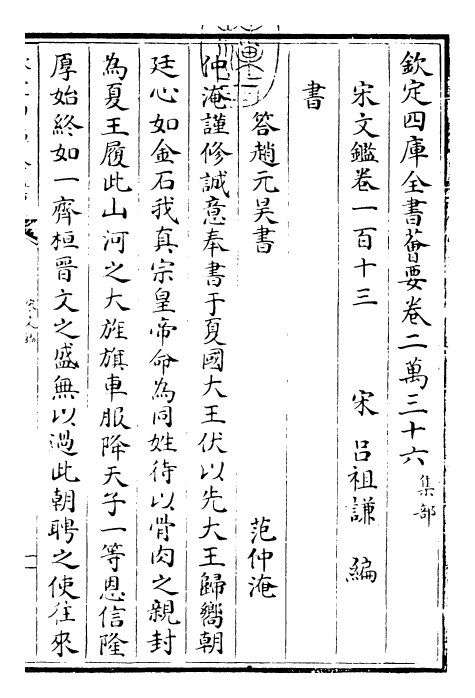 欽定四庫全書薈要卷二萬三十六 集部
宋文鑑卷一百十三
宋 呂祖謙 編
書
答趙元昊書 范仲淹
仲淹謹修誠意奉書于夏國大王伏以先大王歸嚮朝
廷心如金石我真宗皇帝命為同姓待以骨肉之親封
為夏王履此山河之大旌旗車服降天子一等恩信隆
厚始終如一齊桓晉文之盛無以過此朝聘之使往來